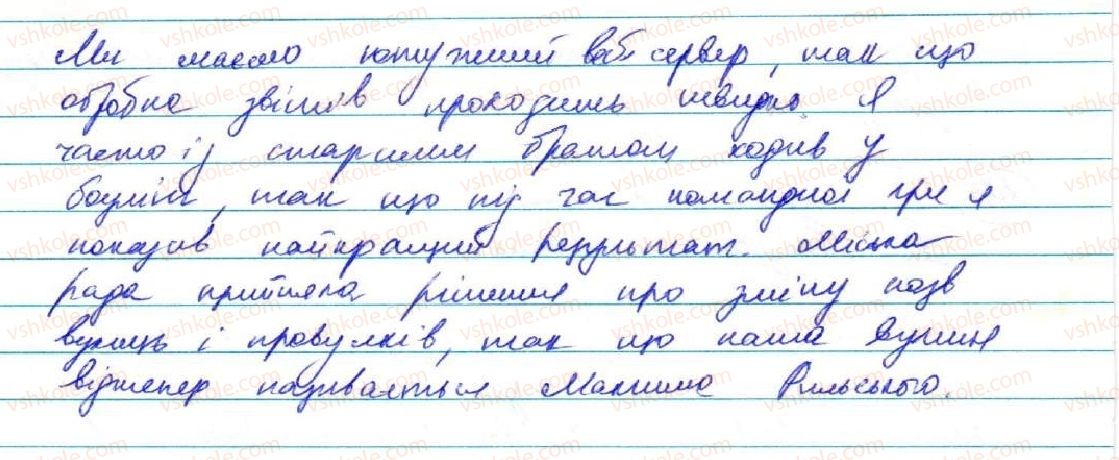 Ми маємо потужний вебсервер, так що
обробка звітів проходить швидко. Я
часто із старшим братом ходив у
боулінг, так що під час командної гри я
показав найкращий результат. Міська
рада прийняла рішення про зміну назв
вулиць і провулків, так що наша вулиця
відтепер називається Максима Рильського.